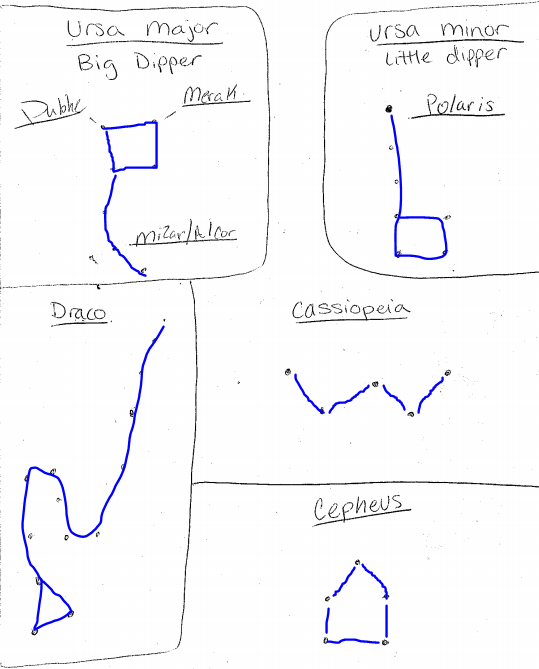 Ursa major
Big Dipper
Dubhe
Merak
Mizar/Alcor
Ursa minor
Little dipper
Polaris
Draco
Cassiopeia
Cepheus